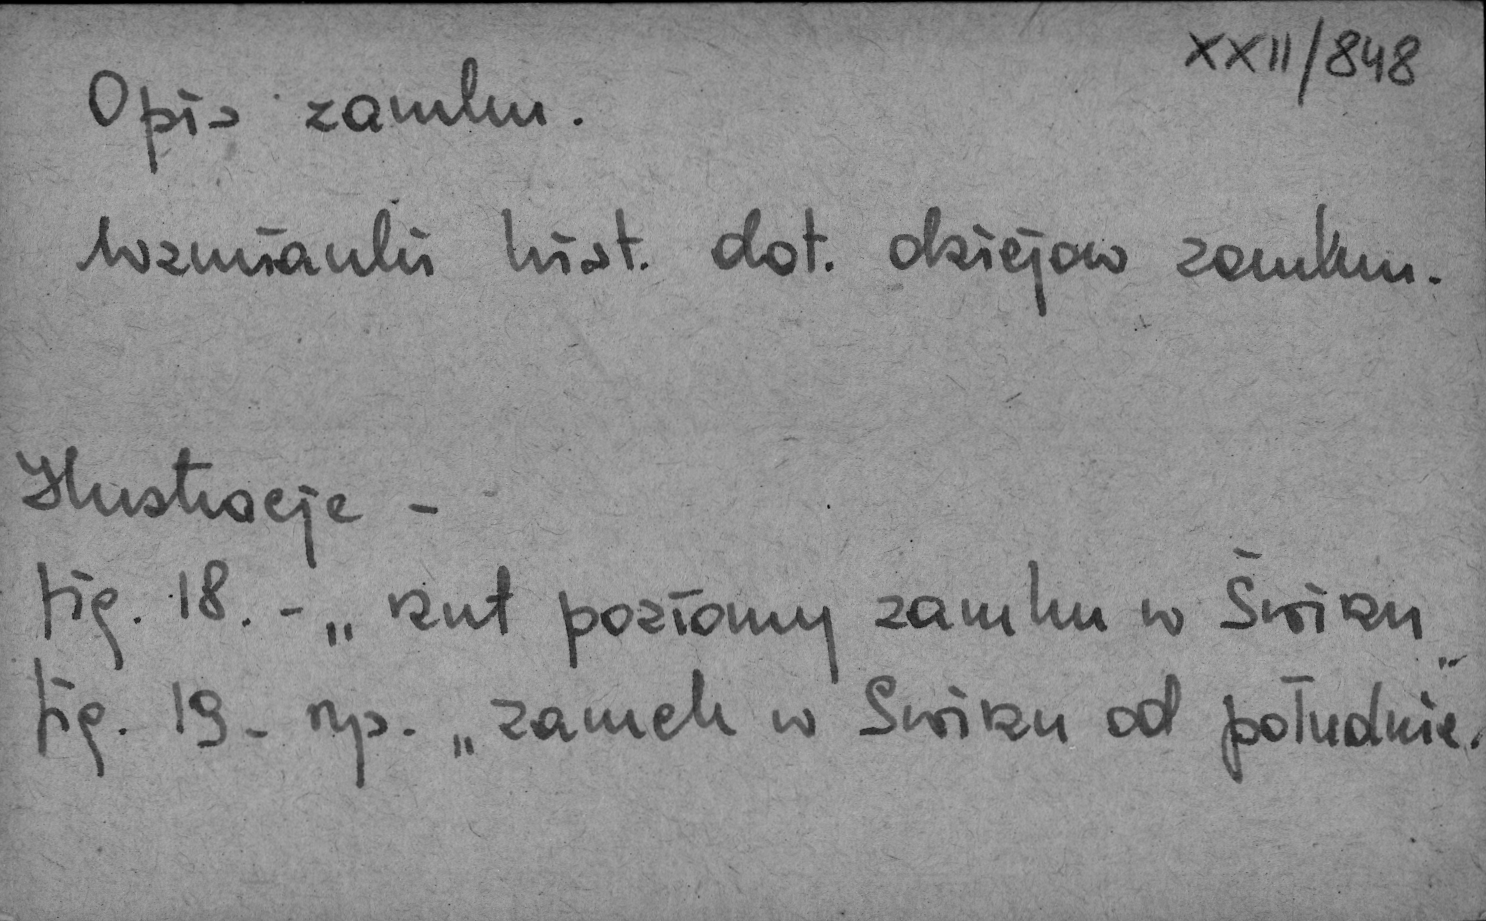 XXII/848
Opis zamku.
Wzmianki hist. dot. dziejow zamku.
Ilustracje -
fig. 18. - „rzut poziomy zamku w Świrzu"
fig. 19 - rys. „zamek w Swirzu od południa.